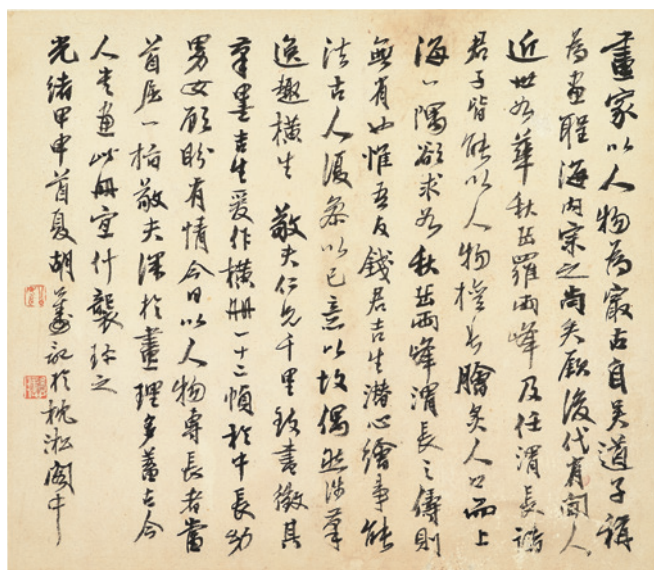 畫家以人物為最古自吳道子稱
為画聖海内宗之尚矣厥後代有聞人
近世如華秋岳羅兩峰及任渭長諸
君子皆能以人物擅長膾炙人口而上
海一隅欲求如秋岳兩峰渭長之儔則
無有也惟吾友錢君吉生潛心繪事能
法古人復參以己意以故偶然涉筆
逸趣橫生 敬夫仁兄千里致書徵其
筆墨吉生爰作橫冊一十二幀於中長幼
男女顧盼有情今日以人物專長者當
首屈一指敬夫深於畫理多蓄古今
人先画此冊宜什襲珍之
光緒甲申首夏胡 記於枕淞閣中